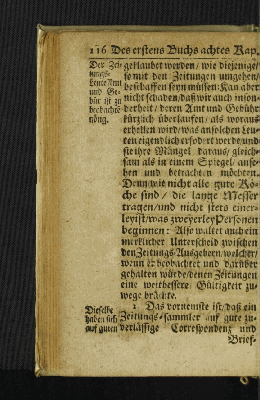 116 Des erstens Buchs achtes Kap.
Der Zei-
tungs-
Leute Amt
und Ge-
bür ist zu
beobachte
nötig.
geklaubet werden/ wie diejenige/
so mit den Zeitungen umgehen/
beschaffen seyn müssen: Kan aber
nicht schaden/ daß wir auch inson-
derheit/ deren Amt und Gebühr
kürzlich überlaufen/ als woraus
erhellen wird/ was an solchen Leu-
ten eigendlich erfodert werde und
sie ihre Mängel daraus/ gleich-
sam als in einem Spiegel/ anse-
hen und betrachten möchten.
Denn wie nicht alle gute Kö-
che sind/ die lange Messer
tragen/und nicht stets einer-
ley ist/was zweyerley Personen
beginnen: Also waltet auch ein
mercklicher Unterscheid zwischen
den Zeitungs-Ausgebern/welcher/
wenn er beobachtet und darüber
gehalten würde/denen Zeitungen
eine weit bessere Gültigkeit zu-
wege brächte.
Dieselbe
haben sich
auf guten
2 Das vornemste ist/ daß ein
Zeitungs-sammler auf gute zu-
verlässige Correspondenz und
Brief-